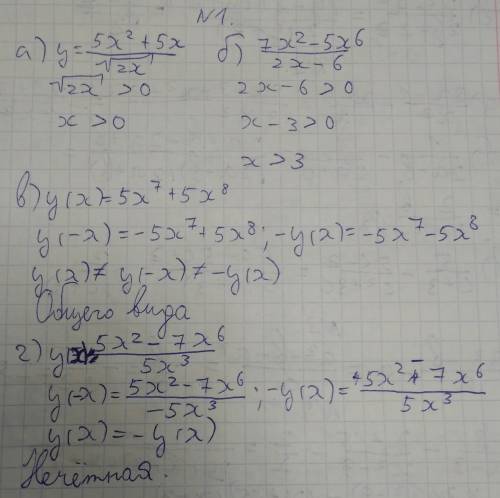 №1.
а) y = (5x² + 5x)/√(2x)   б) (7x² - 5x⁶)/(2x - 6)
√(2x) > 0   2x - 6 > 0
x > 0   x - 3 > 0
x > 3
в) y(x) = 5x⁷ + 5x⁸
y(-x) = -5x⁷ + 5x⁸; -y(x) = -5x⁷ - 5x⁸
y(x) ≠ y(-x) ≠ -y(x)
Общего вида
г) y(x) = (5x² - 7x⁶)/(5x³)
y(-x) = (5x² - 7x⁶)/(-5x³); -y(x) = (5x² - 7x⁶)/(5x³)
y(x) = -y(x)
Нечётная.